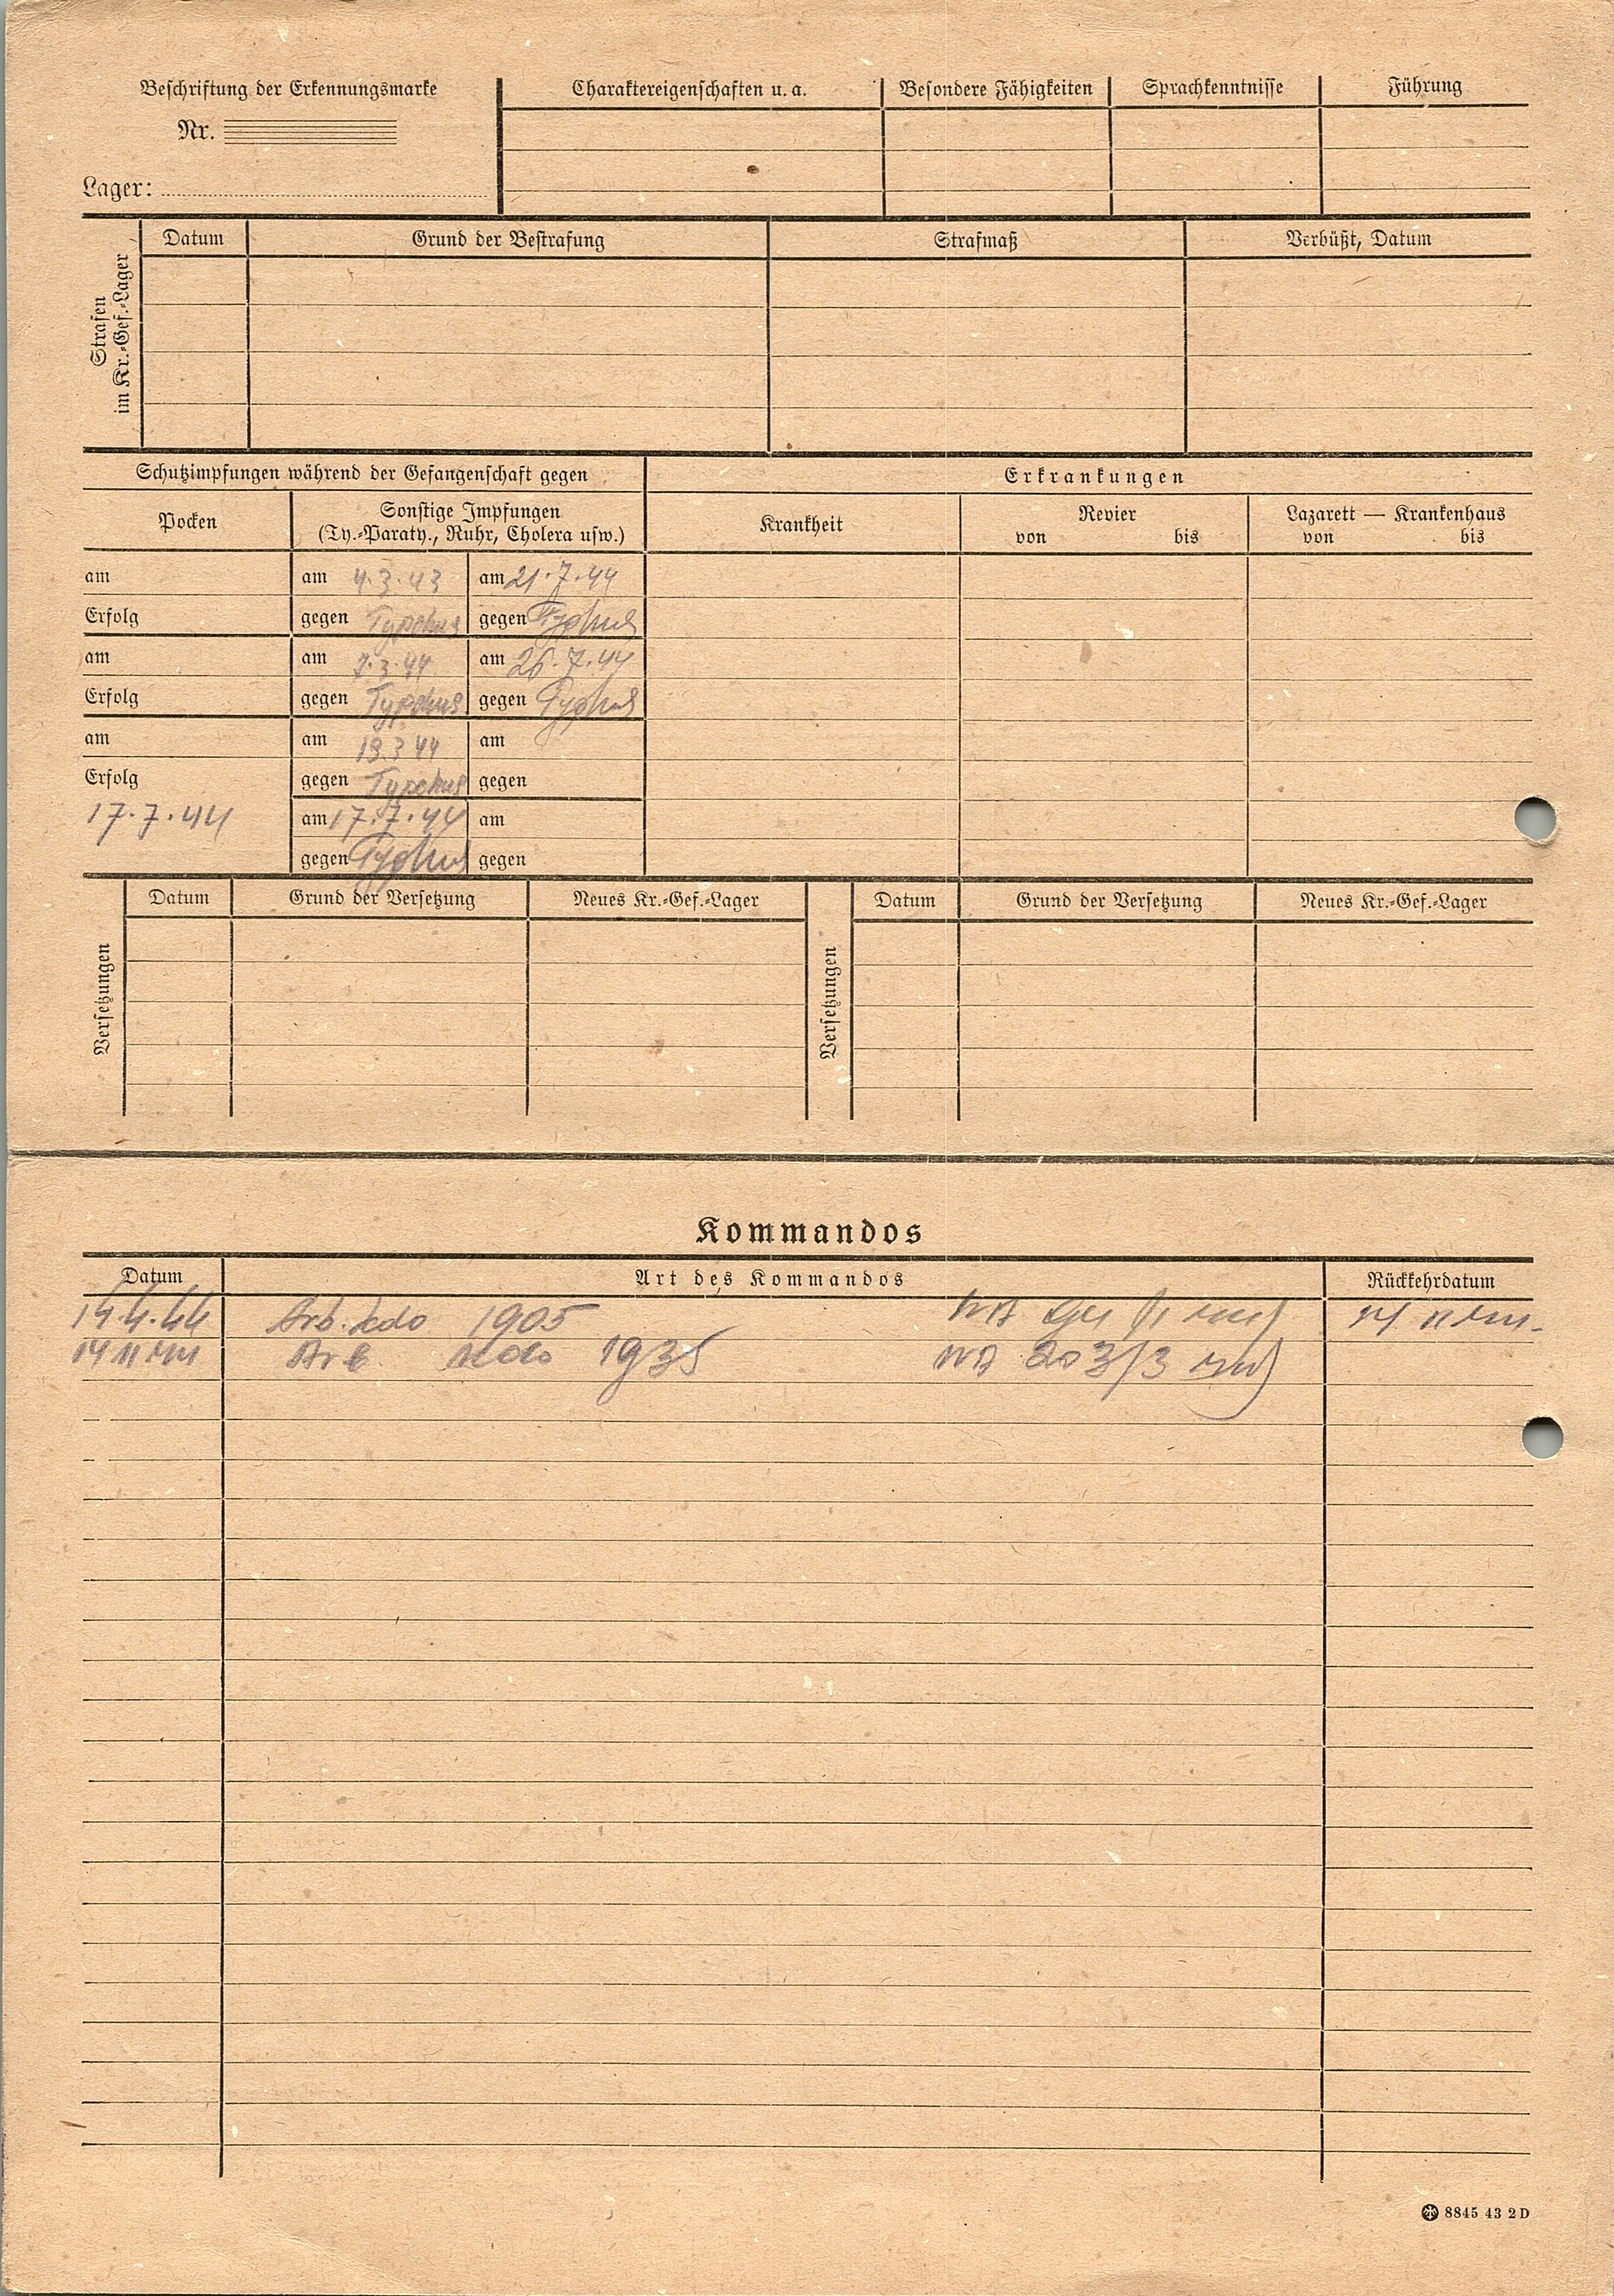 Beschriftung der Erkennungsmarke
Nr.
Lager:
Charaktereigenschaften u. a.
Besondere Fähigkeiten
Sprachkenntnisse
Führung
Strafen
im Kr.-Gef.-Lager
Datum
Grund der Bestrafung
Strafmaß
Verbüßt, Datum
Schutzimpfungen während der Gefangenschaft gegen
Erkrankungen
Pocken
Sonstige Impfungen
(Ty.-Paraty., Ruhr, Cholera usw.)
Krankheit
Revier
von bis
Lazarett — Krankenhaus
von bis
am
am 4.3.43
am 21.7.44
Erfolg
gegen Typhus
gegen Typhus
am
am 7.3.44
am 26.7.44
Erfolg
gegen Typhus
gegen Typhus
am
am 19.3 44
am
Erfolg
gegen Typhus
gegen
17.7.44
am 17.7.44
am
gegen Typhus
gegen
Versetzungen
Datum
Grund der Versetzung
Neues Kr.-Gef.-Lager
Versetzungen
Datum
Grund der Versetzung
Neues Kr.-Gef.-Lager
Kommandos
Datum
Art des Kommandos
Rückkehrdatum
14.4.44 Arb. kdo 1905
14 11 44
14 11 44 Arb. kdo 1935 203/3
8845 43 2 D